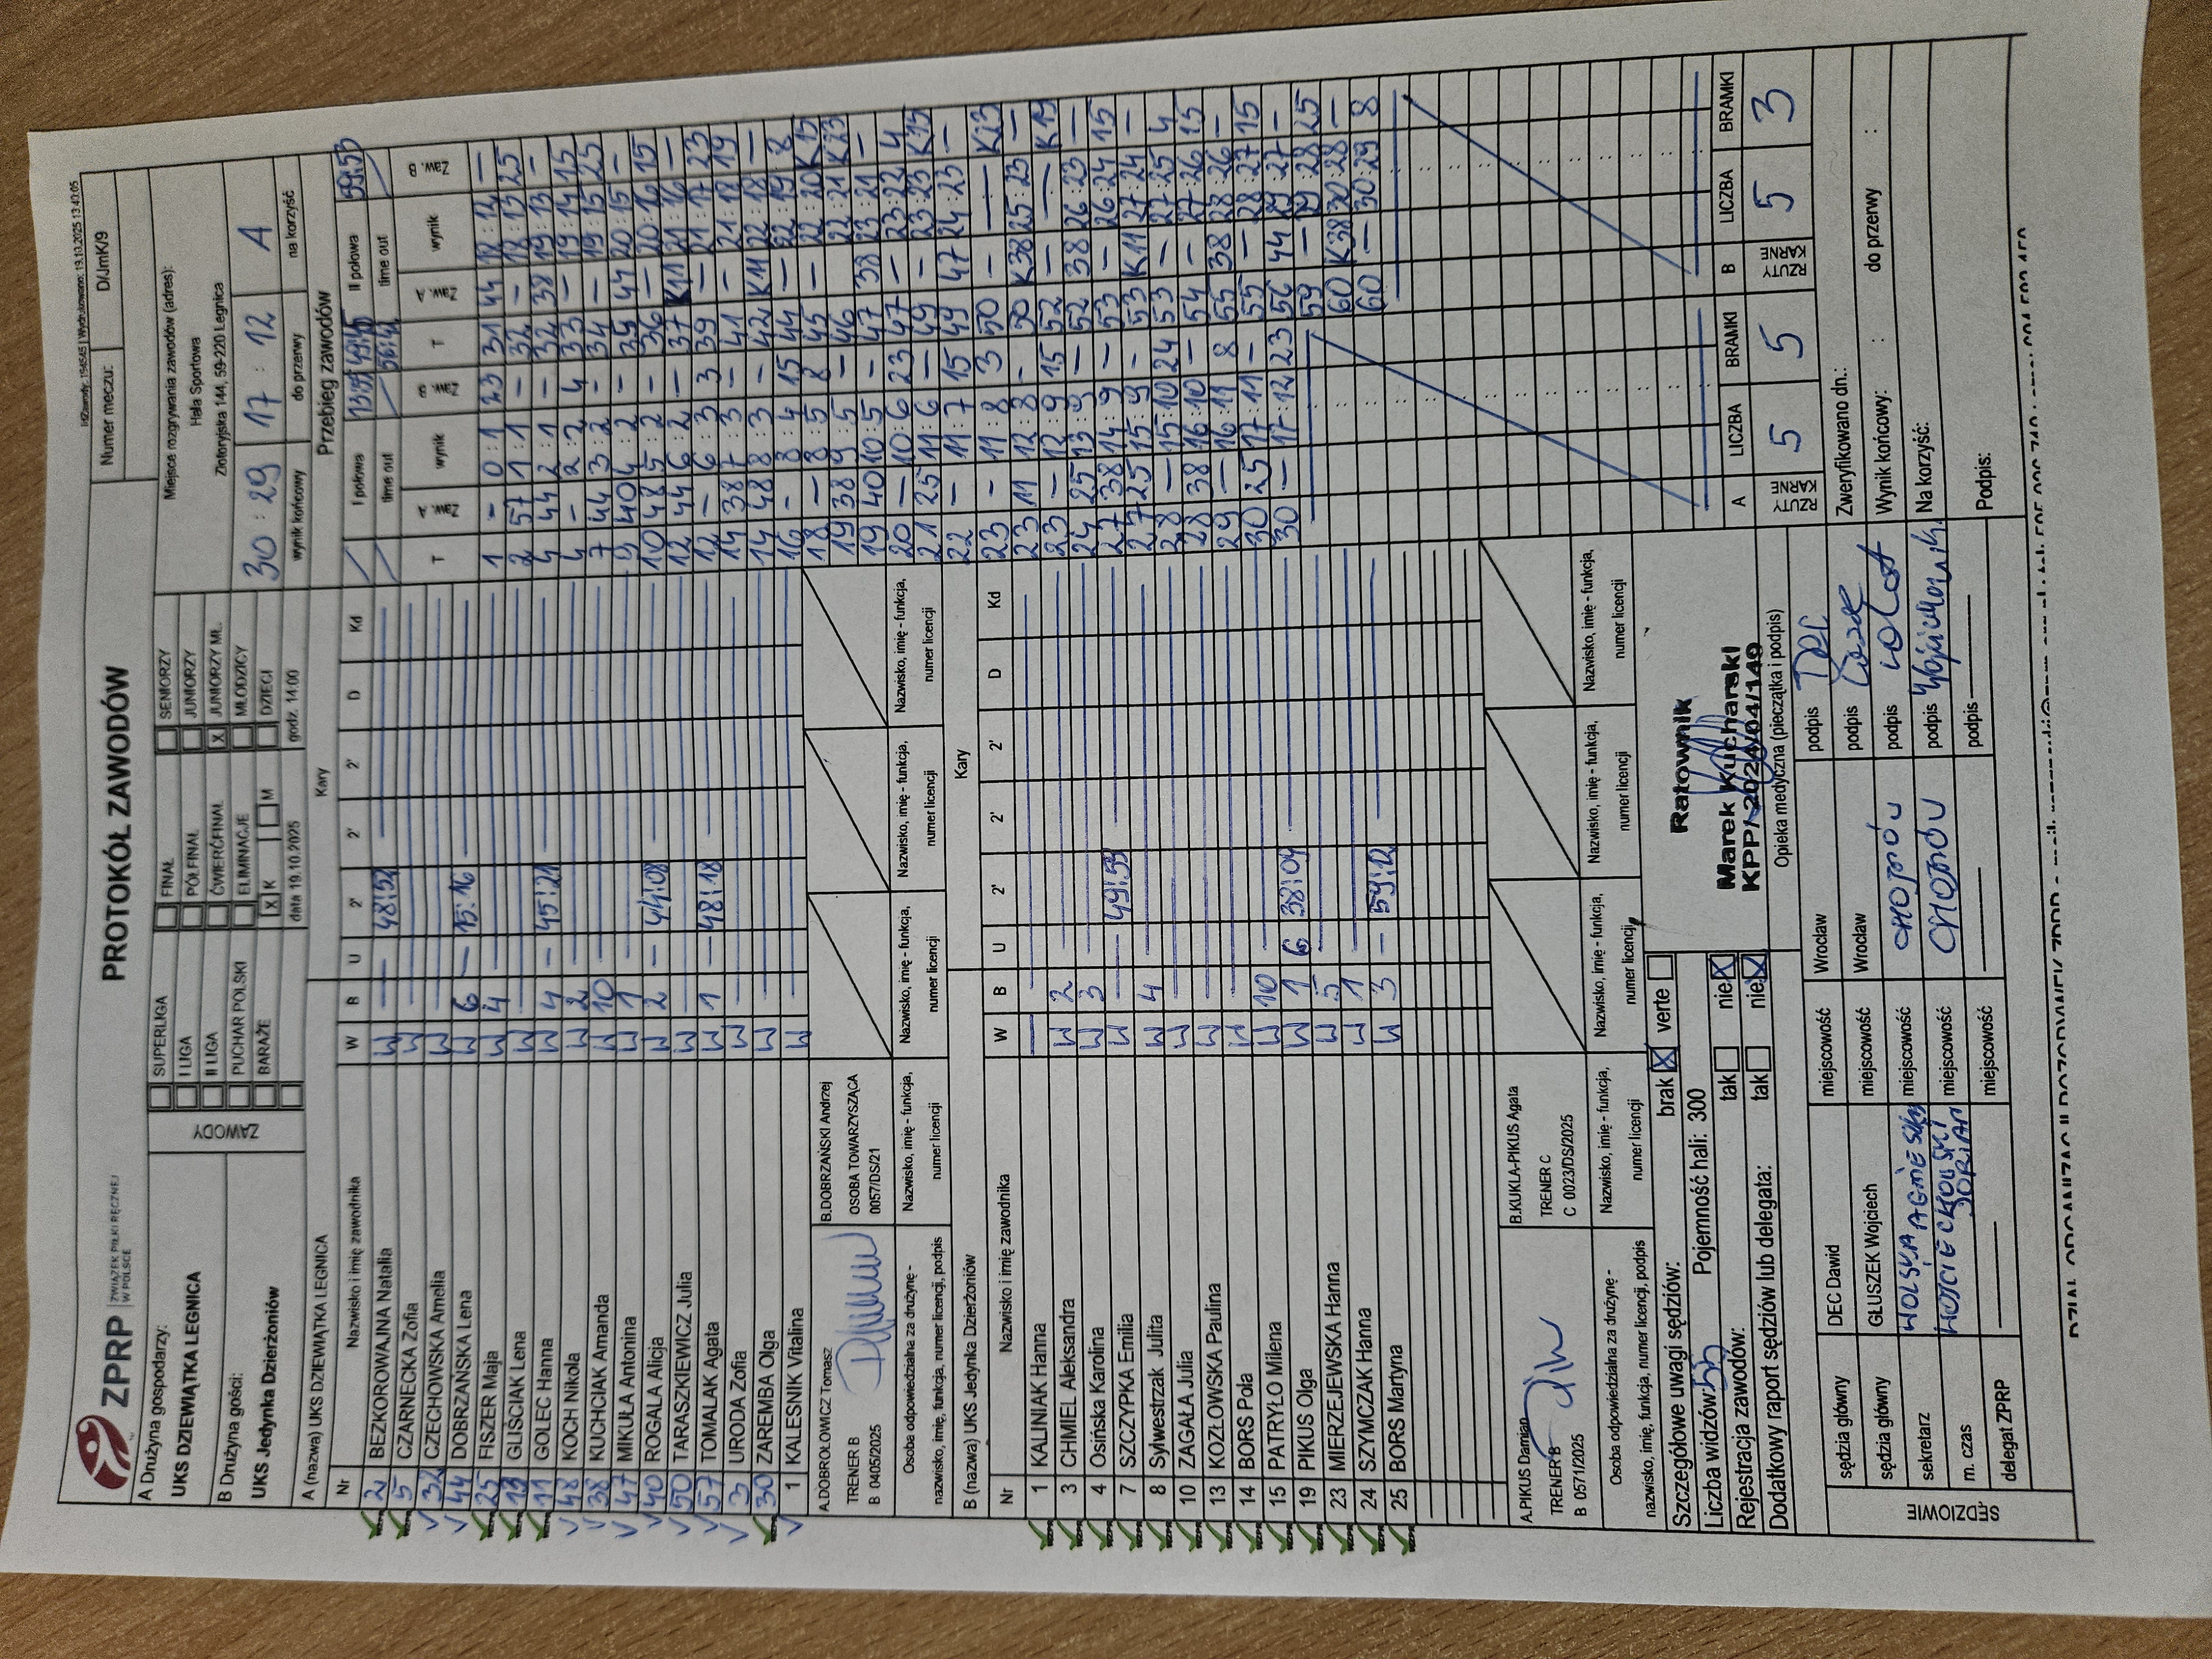 IdZawody: 194545 | Wydrukowano: 19.10.2025 13:40:05
ZPRP ZWIĄZEK PIŁKI RĘCZNEJ W POLSCE
PROTOKÓŁ ZAWODÓW
Numer meczu: D/JmK/9
A Drużyna gospodarzy:
UKS DZIEWIĄTKA LEGNICA
B Drużyna gości:
UKS Jedynka Dzierżoniów
ZAWODY
SUPERLIGA FINAŁ SENIORZY
I LIGA PÓŁFINAŁ JUNIORZY
II LIGA ĆWIERĆFINAŁ X JUNIORZY MŁ.
PUCHAR POLSKI ELIMINACJE MŁODZICY
BARAŻE X K M DZIECI
data 19.10.2025 godz. 14:00
Miejsce rozgrywania zawodów (adres):
Hala Sportowa
Złotoryjska 144, 59-220 Legnica
30 : 29 17 : 12 A
wynik końcowy do przerwy na korzyść
A (nazwa) UKS DZIEWIĄTKA LEGNICA
Kary
Nr Nazwisko i imię zawodnika W B U 2' 2' 2' D Kd
2 BEZKOROWAJNA Natalia W — — 48:52
5 CZARNECKA Zofia W
32 CZECHOWSKA Amelia W
44 DOBRZAŃSKA Lena W 6 — 15:16
25 FISZER Maja W 4
19 GLIŚCIAK Lena W
11 GOLEC Hanna W 4 — 45:21
48 KOCH Nikola W 2
38 KUCHCIAK Amanda W 10
47 MIKUŁA Antonina W 1
40 ROGALA Alicja W 2 — 44:08
50 TARASZKIEWICZ Julia W
57 TOMALAK Agata W 1 — 48:18
3 URODA Zofia W
30 ZAREMBA Olga W
1 KALESNIK Vitalina W
A.DOBROŁOWICZ Tomasz
TRENER B
B 0405/2025
B.DOBRZAŃSKI Andrzej
OSOBA TOWARZYSZĄCA
0057/DS/21
Osoba odpowiedzialna za drużynę -
nazwisko, imię, funkcja, numer licencji, podpis
Nazwisko, imię - funkcja, numer licencji
Nazwisko, imię - funkcja, numer licencji
Nazwisko, imię - funkcja, numer licencji
Nazwisko, imię - funkcja, numer licencji
B (nazwa) UKS Jedynka Dzierżoniów
Kary
Nr Nazwisko i imię zawodnika W B U 2' 2' 2' D Kd
1 KALINIAK Hanna —
3 CHMIEL Aleksandra W 2
4 Osińska Karolina W 3
7 SZCZYPKA Emilia W — 49:59
8 Sylwestrzak Julita W 4
10 ZAGAŁA Julia W
13 KOZŁOWSKA Paulina W
14 BORS Pola W
15 PATRYŁO Milena W 10
19 PIKUS Olga W 1 G 38:09
23 MIERZEJEWSKA Hanna W 5
24 SZYMCZAK Hanna W 1
25 BORS Martyna W 3 — 59:12
A.PIKUS Damian
TRENER B
B 0571/2025
B.KUKLA-PIKUS Agata
TRENER C
C 0023/DS/2025
Osoba odpowiedzialna za drużynę -
nazwisko, imię, funkcja, numer licencji, podpis
Nazwisko, imię - funkcja, numer licencji
Nazwisko, imię - funkcja, numer licencji
Nazwisko, imię - funkcja, numer licencji
Nazwisko, imię - funkcja, numer licencji
Szczegółowe uwagi sędziów: brak X verte
Liczba widzów: 55 Pojemność hali: 300
Rejestracja zawodów: tak nie X
Dodatkowy raport sędziów lub delegata: tak nie X
Ratownik
Marek Kucharski
KPP/2024/04/149
Opieka medyczna (pieczątka i podpis)
SĘDZIOWIE
sędzia główny DEC Dawid miejscowość Wrocław podpis
sędzia główny GŁUSZEK Wojciech miejscowość Wrocław podpis
sekretarz WOLSKA AGNIESZKA miejscowość CHOJNÓW podpis
m. czas WOJCIECHOWSKI DORIAN miejscowość CHOJNÓW podpis
delegat ZPRP miejscowość podpis
Przebieg zawodów
I połowa 13:59 49:45 II połowa 59:53
time out 56:42 time out
T Zaw. A wynik Zaw. B T Zaw. A wynik Zaw. B
1 - 0:1 23 31 44 18:12 —
2 57 1:1 - 32 - 18:13 25
4 44 2:1 - 32 38 19:13 -
4 - 2:2 4 33 - 19:14 15
7 44 3:2 - 34 - 19:15 25
9 40 4:2 - 35 44 20:15 -
10 48 5:2 - 36 - 20:16 15
12 44 6:2 — 37 K11 21:16 —
12 - 6:3 3 39 — 21:17 23
14 38 7:3 - 41 - 21:18 19
14 48 8:3 - 42 K11 22:18 —
16 - 8:4 15 44 — 22:19 8
18 - 8:5 8 45 — 22:20 K15
19 38 9:5 — 46 22:21 K23
19 40 10:5 - 47 38 23:21 —
20 — 10:6 23 47 - 23:22 4
21 25 11:6 — 49 - 23:23 K15
22 - 11:7 15 49 47 24:23 —
23 - 11:8 3 50 - — K23
23 11 12:8 - 50 K38 25:23 —
23 - 12:9 15 52 — — K19
24 25 13:9 — 52 38 26:23 —
27 38 14:9 - 53 - 26:24 15
27 25 15:9 - 53 K11 27:24 -
28 — 15:10 24 53 - 27:25 4
28 38 16:10 - 54 - 27:26 15
29 — 16:11 8 55 38 28:26 -
30 25 17:11 - 55 — 28:27 15
30 — 17:12 23 56 44 29:27 -
59 — 29:28 25
60 K38 30:28 —
60 — 30:29 8
A LICZBA BRAMKI B LICZBA BRAMKI
RZUTY KARNE 5 5 RZUTY KARNE 5 3
Zweryfikowano dn.:
Wynik końcowy: : do przerwy :
Na korzyść:
Podpis: